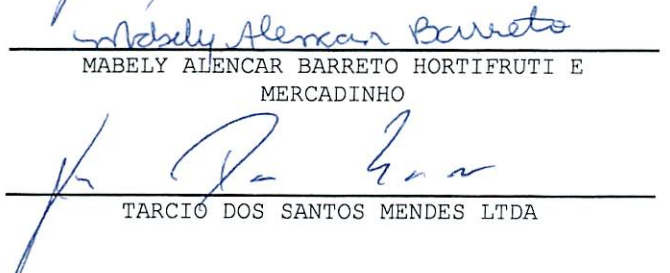 Mabely Alencar Barreto
MABELY ALENCAR BARRETO HORTIFRUTI E
MERCADINHO
TARCIO DOS SANTOS MENDES LTDA